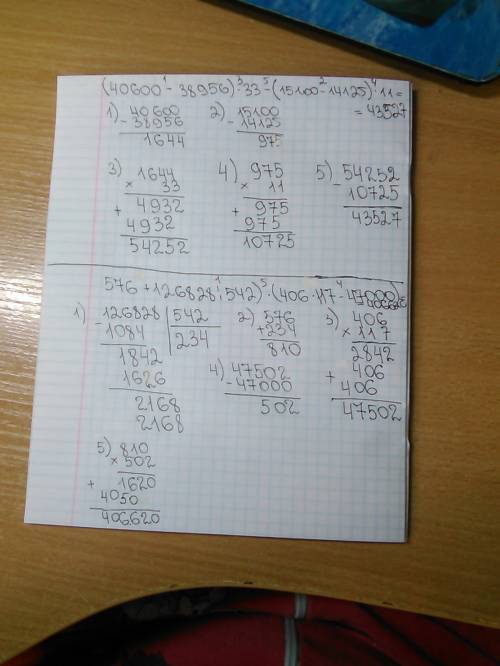 (40600 - 38956) · 33 - (15100 - 14125) · 11 =
= 43527
1) 40600
- 38956
1644
2) 15100
- 14125
975
3) 1644
× 33
4932
+ 4932
54252
4) 975
× 11
975
+ 975
10725
5) 54252
- 10725
43527
576 + 126828 : 542) · (406 · 117 - 47000)
406620
1) 126828 | 542
- 1084 | 234
1842
1626
2168
2168
2) 576
+ 234
810
3) 406
× 117
2842
+ 406
406
47502
4) 47502
- 47000
502
5) 810
× 502
1620
+ 4050
406620